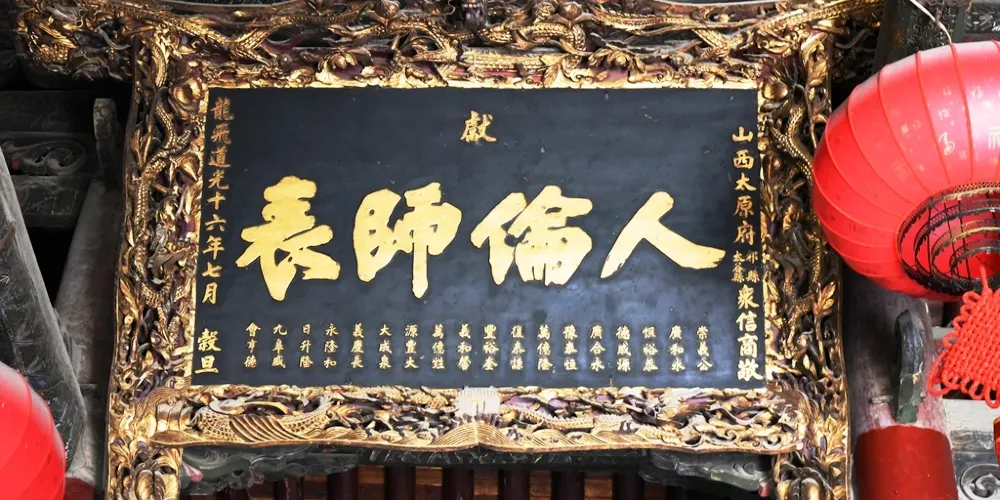 山西太原府祁縣太谷縣眾信商敬
獻
人倫師表
崇義公
廣和永
恆裕泰
德成源
廣合永
豫泰恒
萬億隆
復泰謙
豐裕全
義和馨
萬億班
源豐大
大成泉
義慶長
永隆和
日升隆
九阜盛
會亨德
龍飛道光十六年七月 穀旦